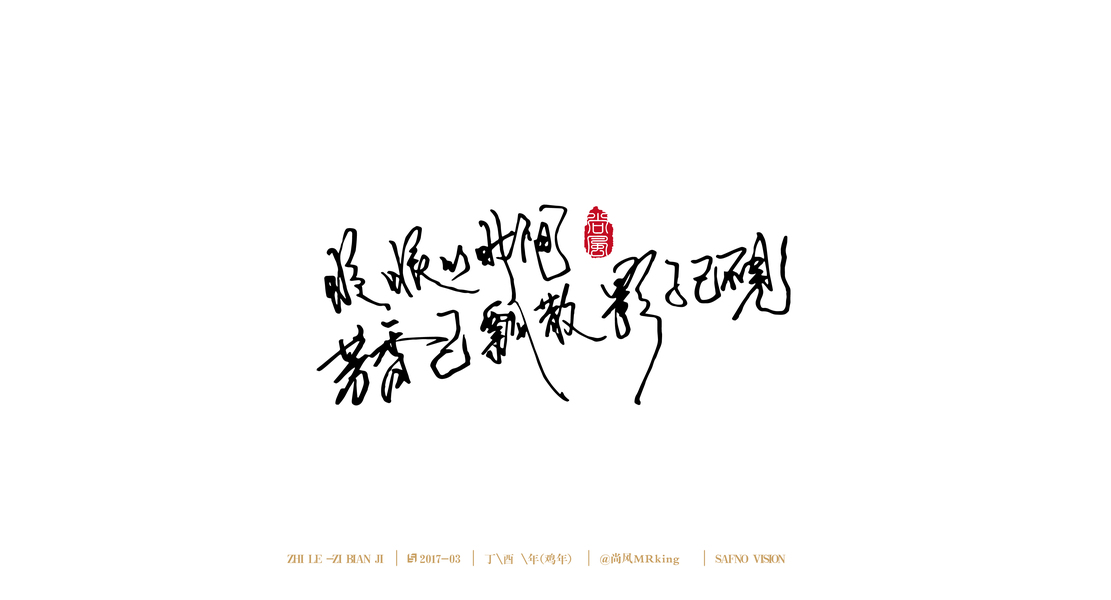 眼眼以时间
尚风
芳香已飘散 影子已
ZHI LE —ZI BIAN JI
2017—03
丁\酉 \年(鸡年)
@尚风MRking
SAFNO VISION